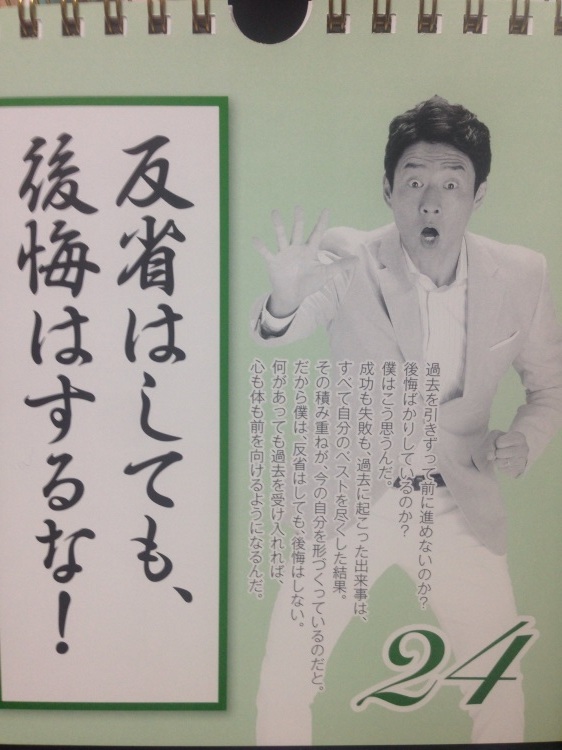 反省はしても、
後悔はするな!
過去を引きずって前に進めないのか?
後悔ばかりしているのか?
僕はこう思うんだ。
成功も失敗も、過去に起こった出来事は、
すべて自分のベストを尽くした結果。
その積み重ねが、今の自分を形づくっているのだと。
だから僕は、反省はしても、後悔はしない。
何があっても過去を受け入れれば、
心も体も前を向けるようになるんだ。
24